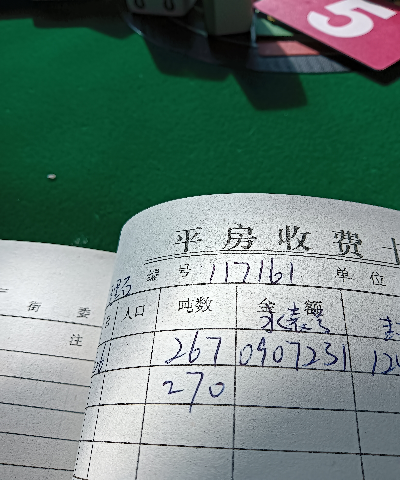 5
平房收费
编号 117161 单位
街委
人口 吨数 金额
水表号
注
267 0907231 12
270